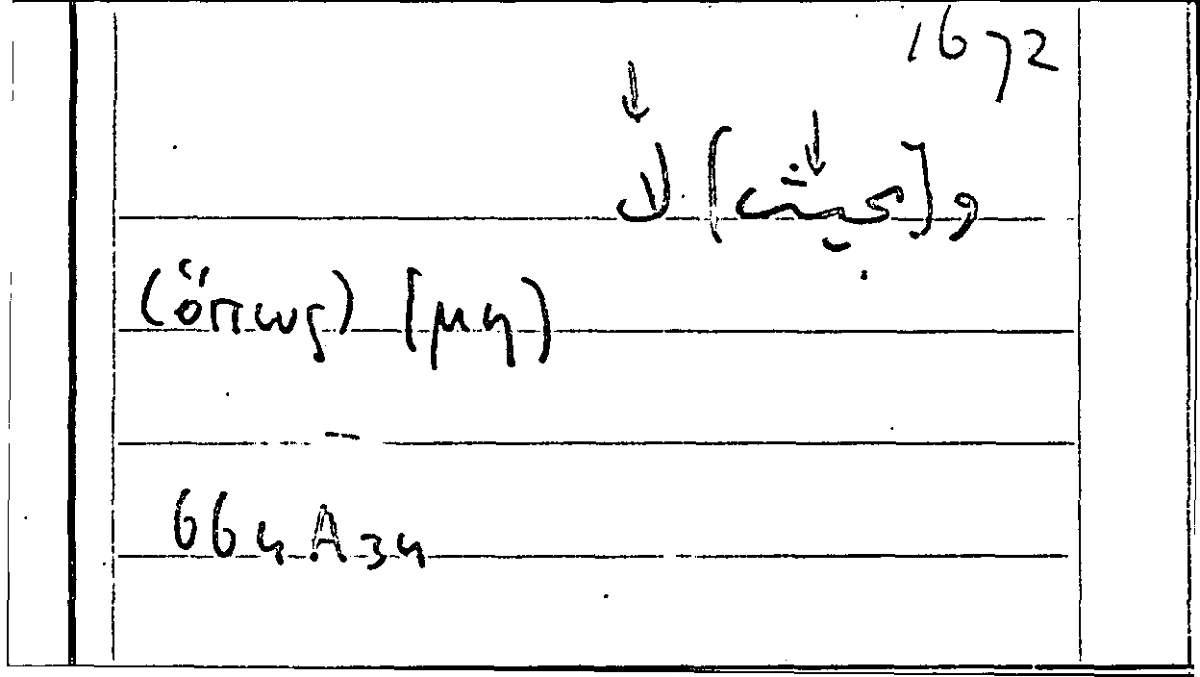 1672
و [حيث] لا
(ὅπως) [μη)
664A34